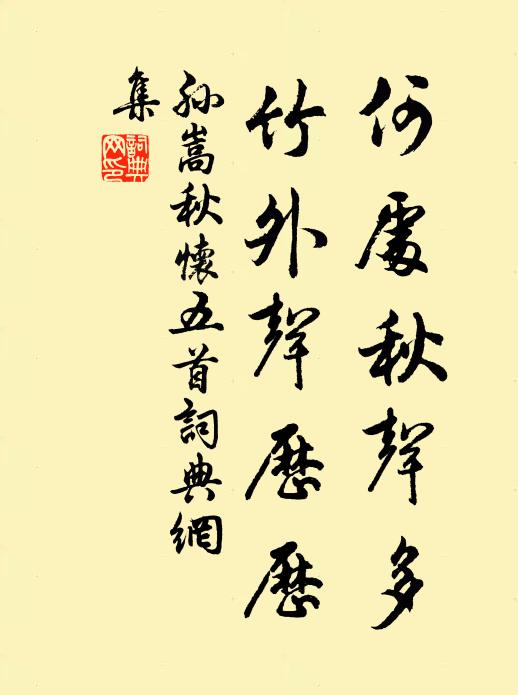 何處秋聲多
竹外聲歷歷
孫嵩秋懷五首詞典網
集
詞典
网印